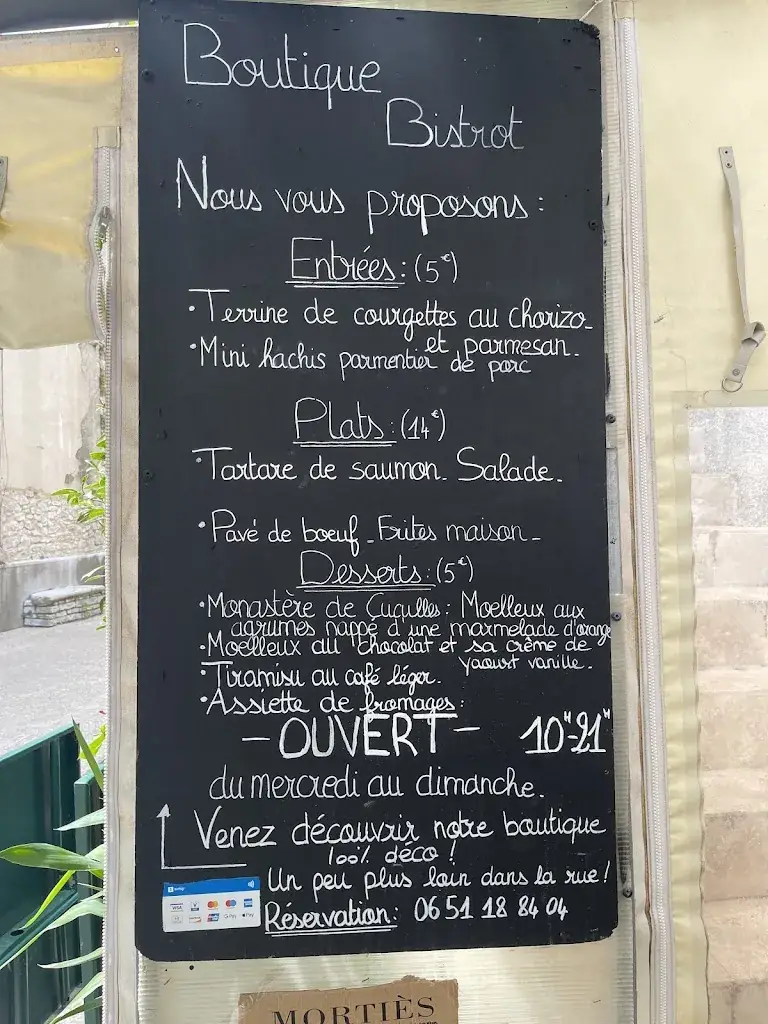 Boutique
Bistrot
Nous vous proposons :
Entrées : (5€)
• Terrine de courgettes au chorizo
et parmesan.
• Mini hachis parmentier de porc
Plats : (14€)
• Tartare de saumon. Salade.
• Pavé de boeuf. Frites maison.
Desserts : (5€)
• Monastère de Cuculles : Moelleux aux
agrumes nappé d'une marmelade d'orange
• Moelleux au chocolat et sa crème de
yaourt vanille.
• Tiramisu au café léger.
• Assiette de fromages :
- OUVERT - 10H-21H
du mercredi au dimanche.
Venez découvrir notre boutique
100% déco !
Un peu plus loin dans la rue !
Réservation : 06 51 18 84 04
VISA
G Pay
Pay
MORTIÈS